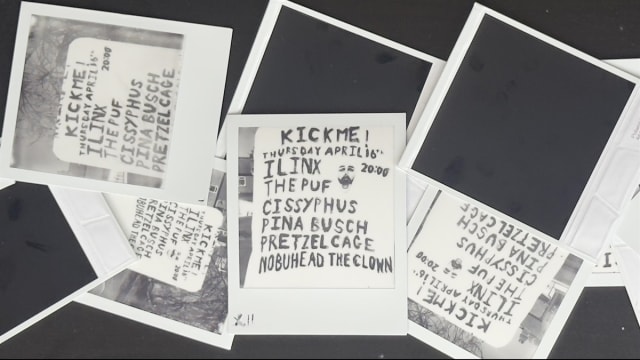 KICKME!
THURSDAY APRIL 16TH
ILINX 20:00
THE PUF
CISSYPHUS
PINA BUSCH
PRETZEL CAGE
NOBUHEAD THE CLOWN
KICKME!
THURSDAY APRIL 16TH
ILINX 20:00
THE PUF
CISSYPHUS
PINA BUSCH
PRETZEL CAGE
KICKME!
THURSDAY APRIL 16TH
ILINX 20:00
THE PUF
CISSYPHUS
PINA BUSCH
PRETZEL CAGE
NOBUHEAD THE
KICKME!
THURSDAY APRIL 16TH
ILINX 20:00
THE PUF
CISSYPHUS
PINA BUSCH
PRETZEL CAGE